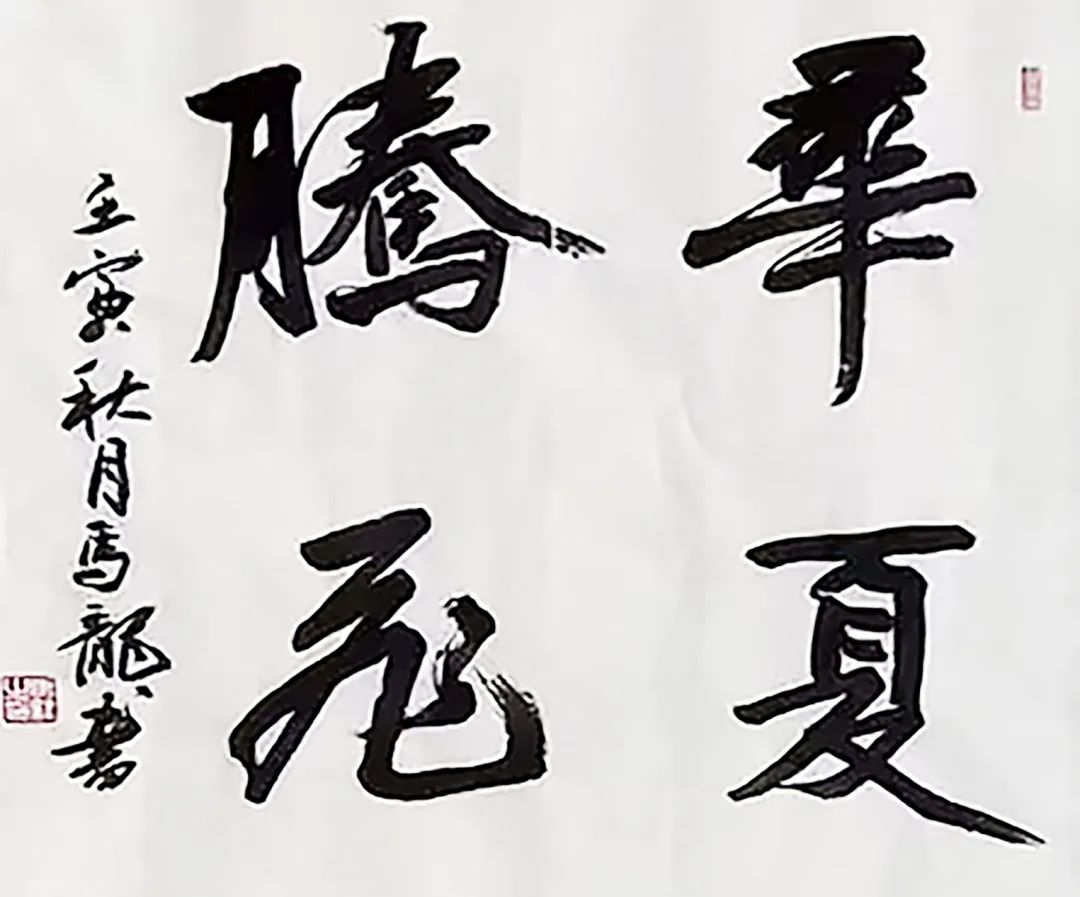 華夏
騰飛
壬寅秋月馬龍書